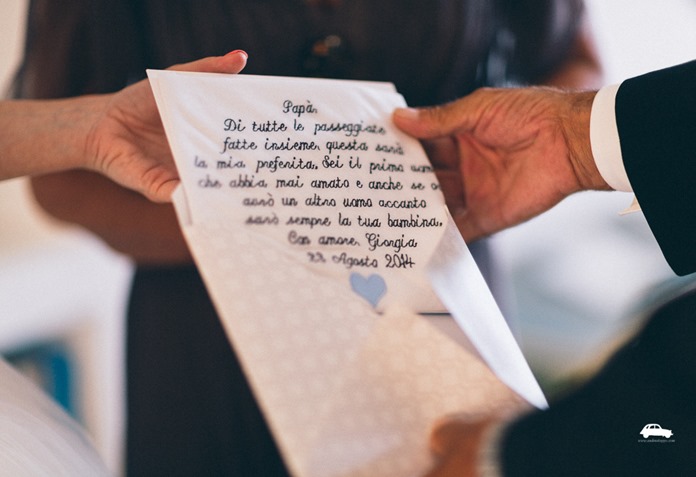 Papà,
Di tutte le passeggiate
fatte insieme, questa sarà
la mia preferita. Sei il primo uomo
che abbia mai amato e anche se o
avrò un altro uomo accanto
sarò sempre la tua bambina.
Con amore, Giorgia
Agosto 2014